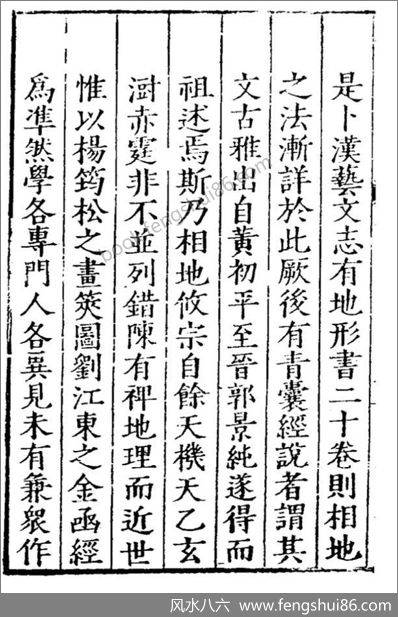 是卜漢藝文志有地形書二十卷則相地
之法漸詳於此厥後有青囊經說者謂其
文古雅出自黃初平至晉郭景純遂得而
祖述焉斯乃相地攸宗自餘天機天乙玄
澍赤霆非不並列錯陳有裨地理而近世
惟以楊筠松之畫筴圖劉江東之金函經
為準然學各專門人各異見未有兼眾作
book.fengshui86.com
风水八六 www.fengshui86.com